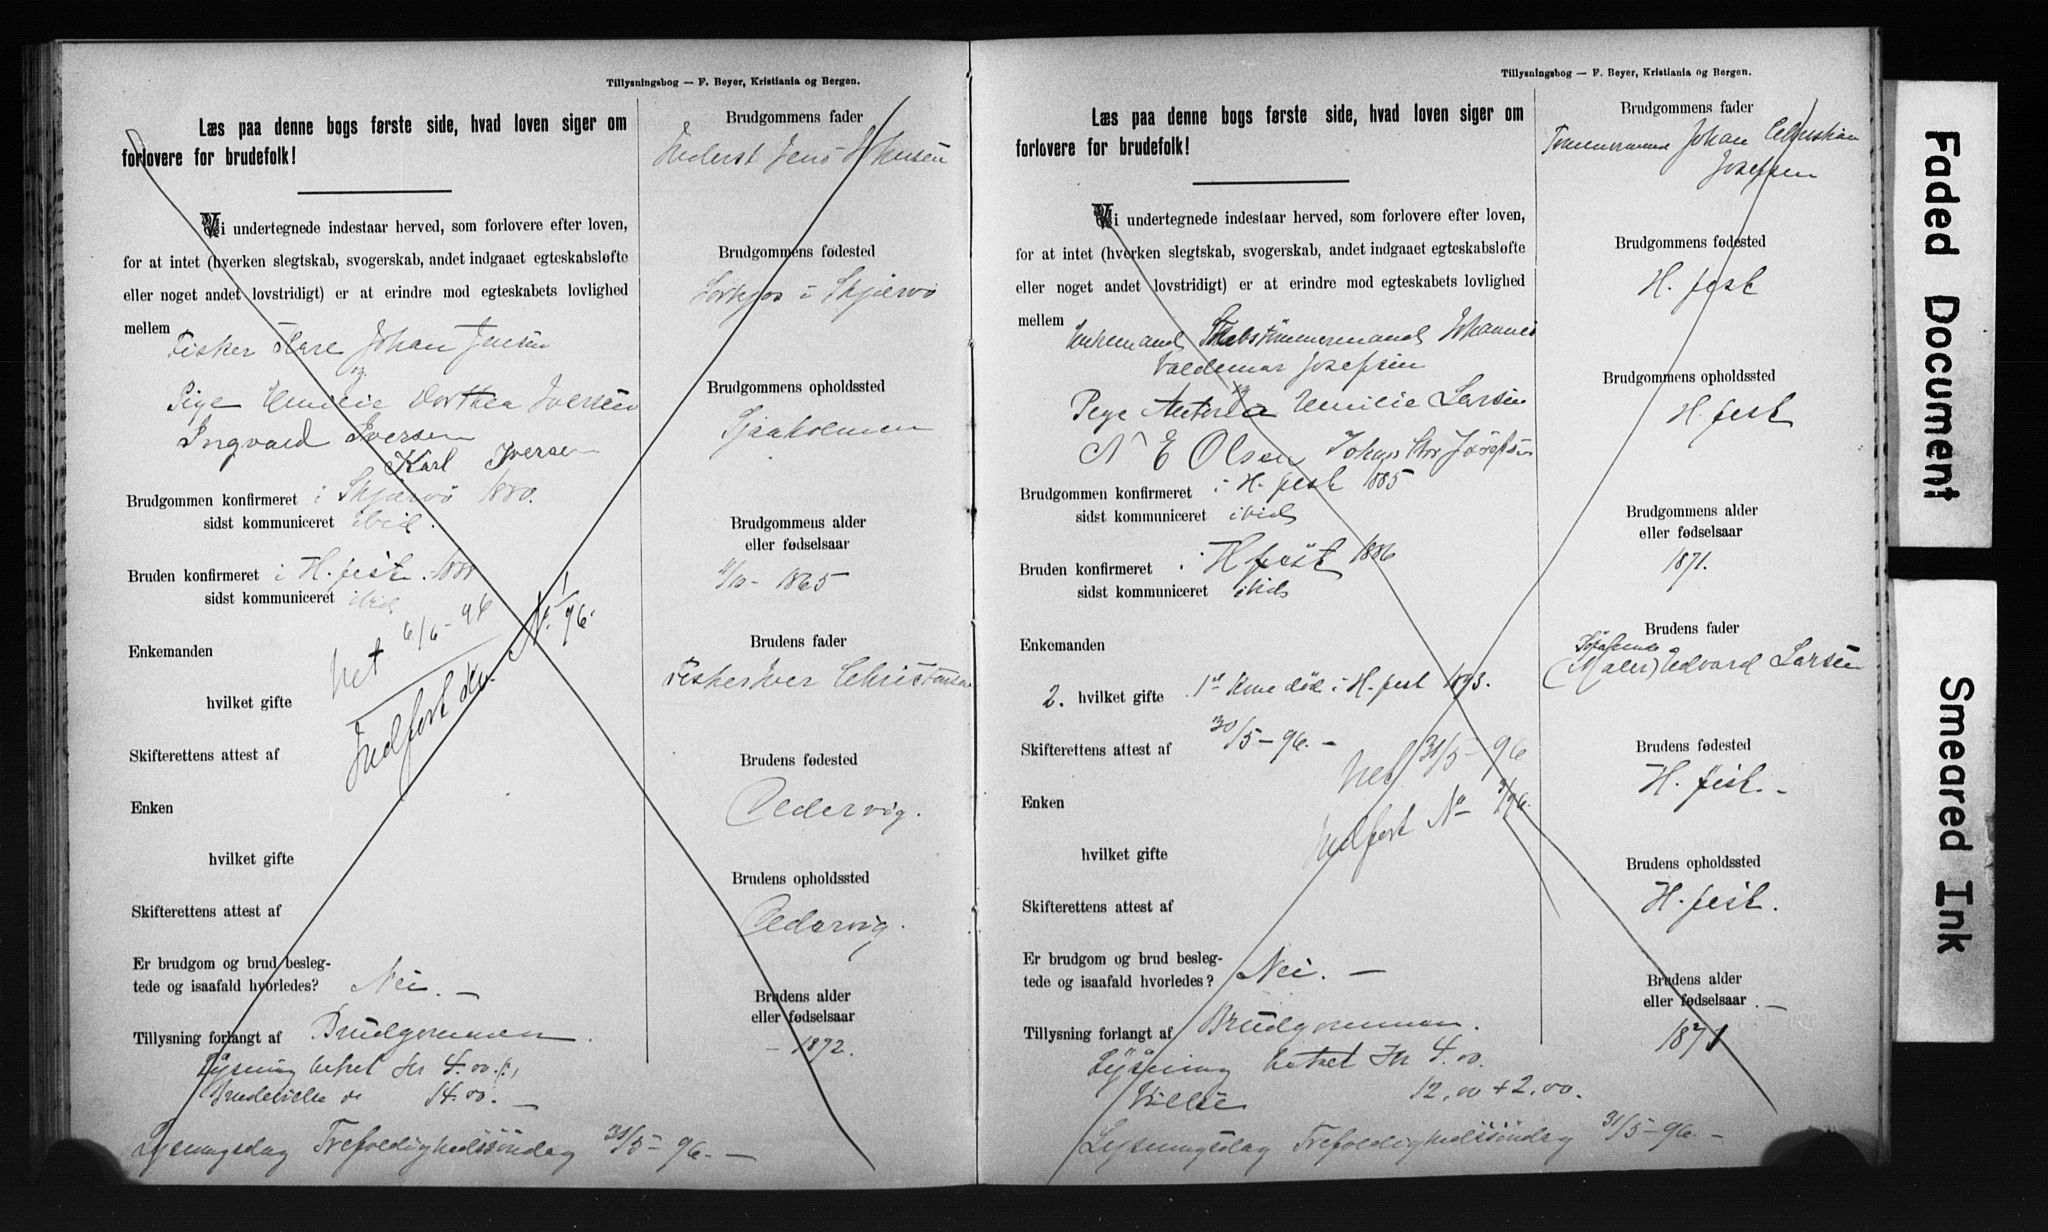 Tillysningsbog — F. Beyer, Kristiania og Bergen.
Læs paa denne bogs første side, hvad loven siger om
forlovere for brudefolk!
Vi undertegnede indestaar herved, som forlovere efter loven,
for at intet (hverken slegtskab, svogerskab, andet indgaaet egteskabsløfte
eller noget andet lovstridigt) er at erindre mod egteskabets lovlighed
mellem
Fisker Hare Johan Jensen
og
Pige Emilie Dorthea Iversen
Ingvald Iversen
Karl Iversen
Brudgommen konfirmeret i Skjærvø 1880.
sidst kommuniceret ibid.
Bruden konfirmeret i H.fest. 1888
sidst kommuniceret ibid
Enkemanden
Viet 6/6-96
hvilket gifte
Indført No. 1/96.
Skifterettens attest af
Enken
hvilket gifte
Skifterettens attest af
Er brudgom og brud besleg-
tede og isaafald hvorledes? Nei. —
Tillysning forlangt af Brudgommen.
Lysning betalt Kr 4.00
Brudevielse do 14.00. —
Lysningsdag Trefoldighedssöndag 31/5-96. —
Brudgommens fader
Inderst Jens Johnsen
Brudgommens fødested
i Skjærvö
Brudgommens opholdssted
Brudgommens alder
eller fødselsaar
1865
Brudens fader
Fisker Iver Christensen
Brudens fødested
Oldervig.
Brudens opholdssted
Oldervig.
Brudens alder
eller fødselsaar
- 1872.
Tillysningsbog — F. Beyer, Kristiania og Bergen.
Læs paa denne bogs første side, hvad loven siger om
forlovere for brudefolk!
Vi undertegnede indestaar herved, som forlovere efter loven,
for at intet (hverken slegtskab, svogerskab, andet indgaaet egteskabsløfte
eller noget andet lovstridigt) er at erindre mod egteskabets lovlighed
mellem
Enkemand Skibstømmermand Johannes
Valdemar Josefsen
og
Pige Antonia Emilie Larsen
N E Olsen Johan Chr Josefsen
Brudgommen konfirmeret i H. fest 1885
sidst kommuniceret ibid
Bruden konfirmeret i H fest 1886
sidst kommuniceret ibid
Enkemanden
2. hvilket gifte 1st Kone död i H. fest 1893.
Skifterettens attest af 30/5-96. -
Viet 31/5-96
Enken
Indført No 3/96.
hvilket gifte
Skifterettens attest af
Er brudgom og brud besleg-
tede og isaafald hvorledes? Nei. —
Tillysning forlangt af Brudgommen.
Lysning betalt Kr 4.00.
Vielse 12.00 + 2.00.
Lysningsdag Trefoldighedssöndag 31/5-96. -
Brudgommens fader
Tømmermand Johan Christian
Josefsen
Brudgommens fødested
H. fest
Brudgommens opholdssted
H. fest
Brudgommens alder
eller fødselsaar
1871.
Brudens fader
(Maler) Edvard Larsen
Brudens fødested
H. fest. -
Brudens opholdssted
H. fest.
Brudens alder
eller fødselsaar —
1871
Faded Document
Smeared Ink